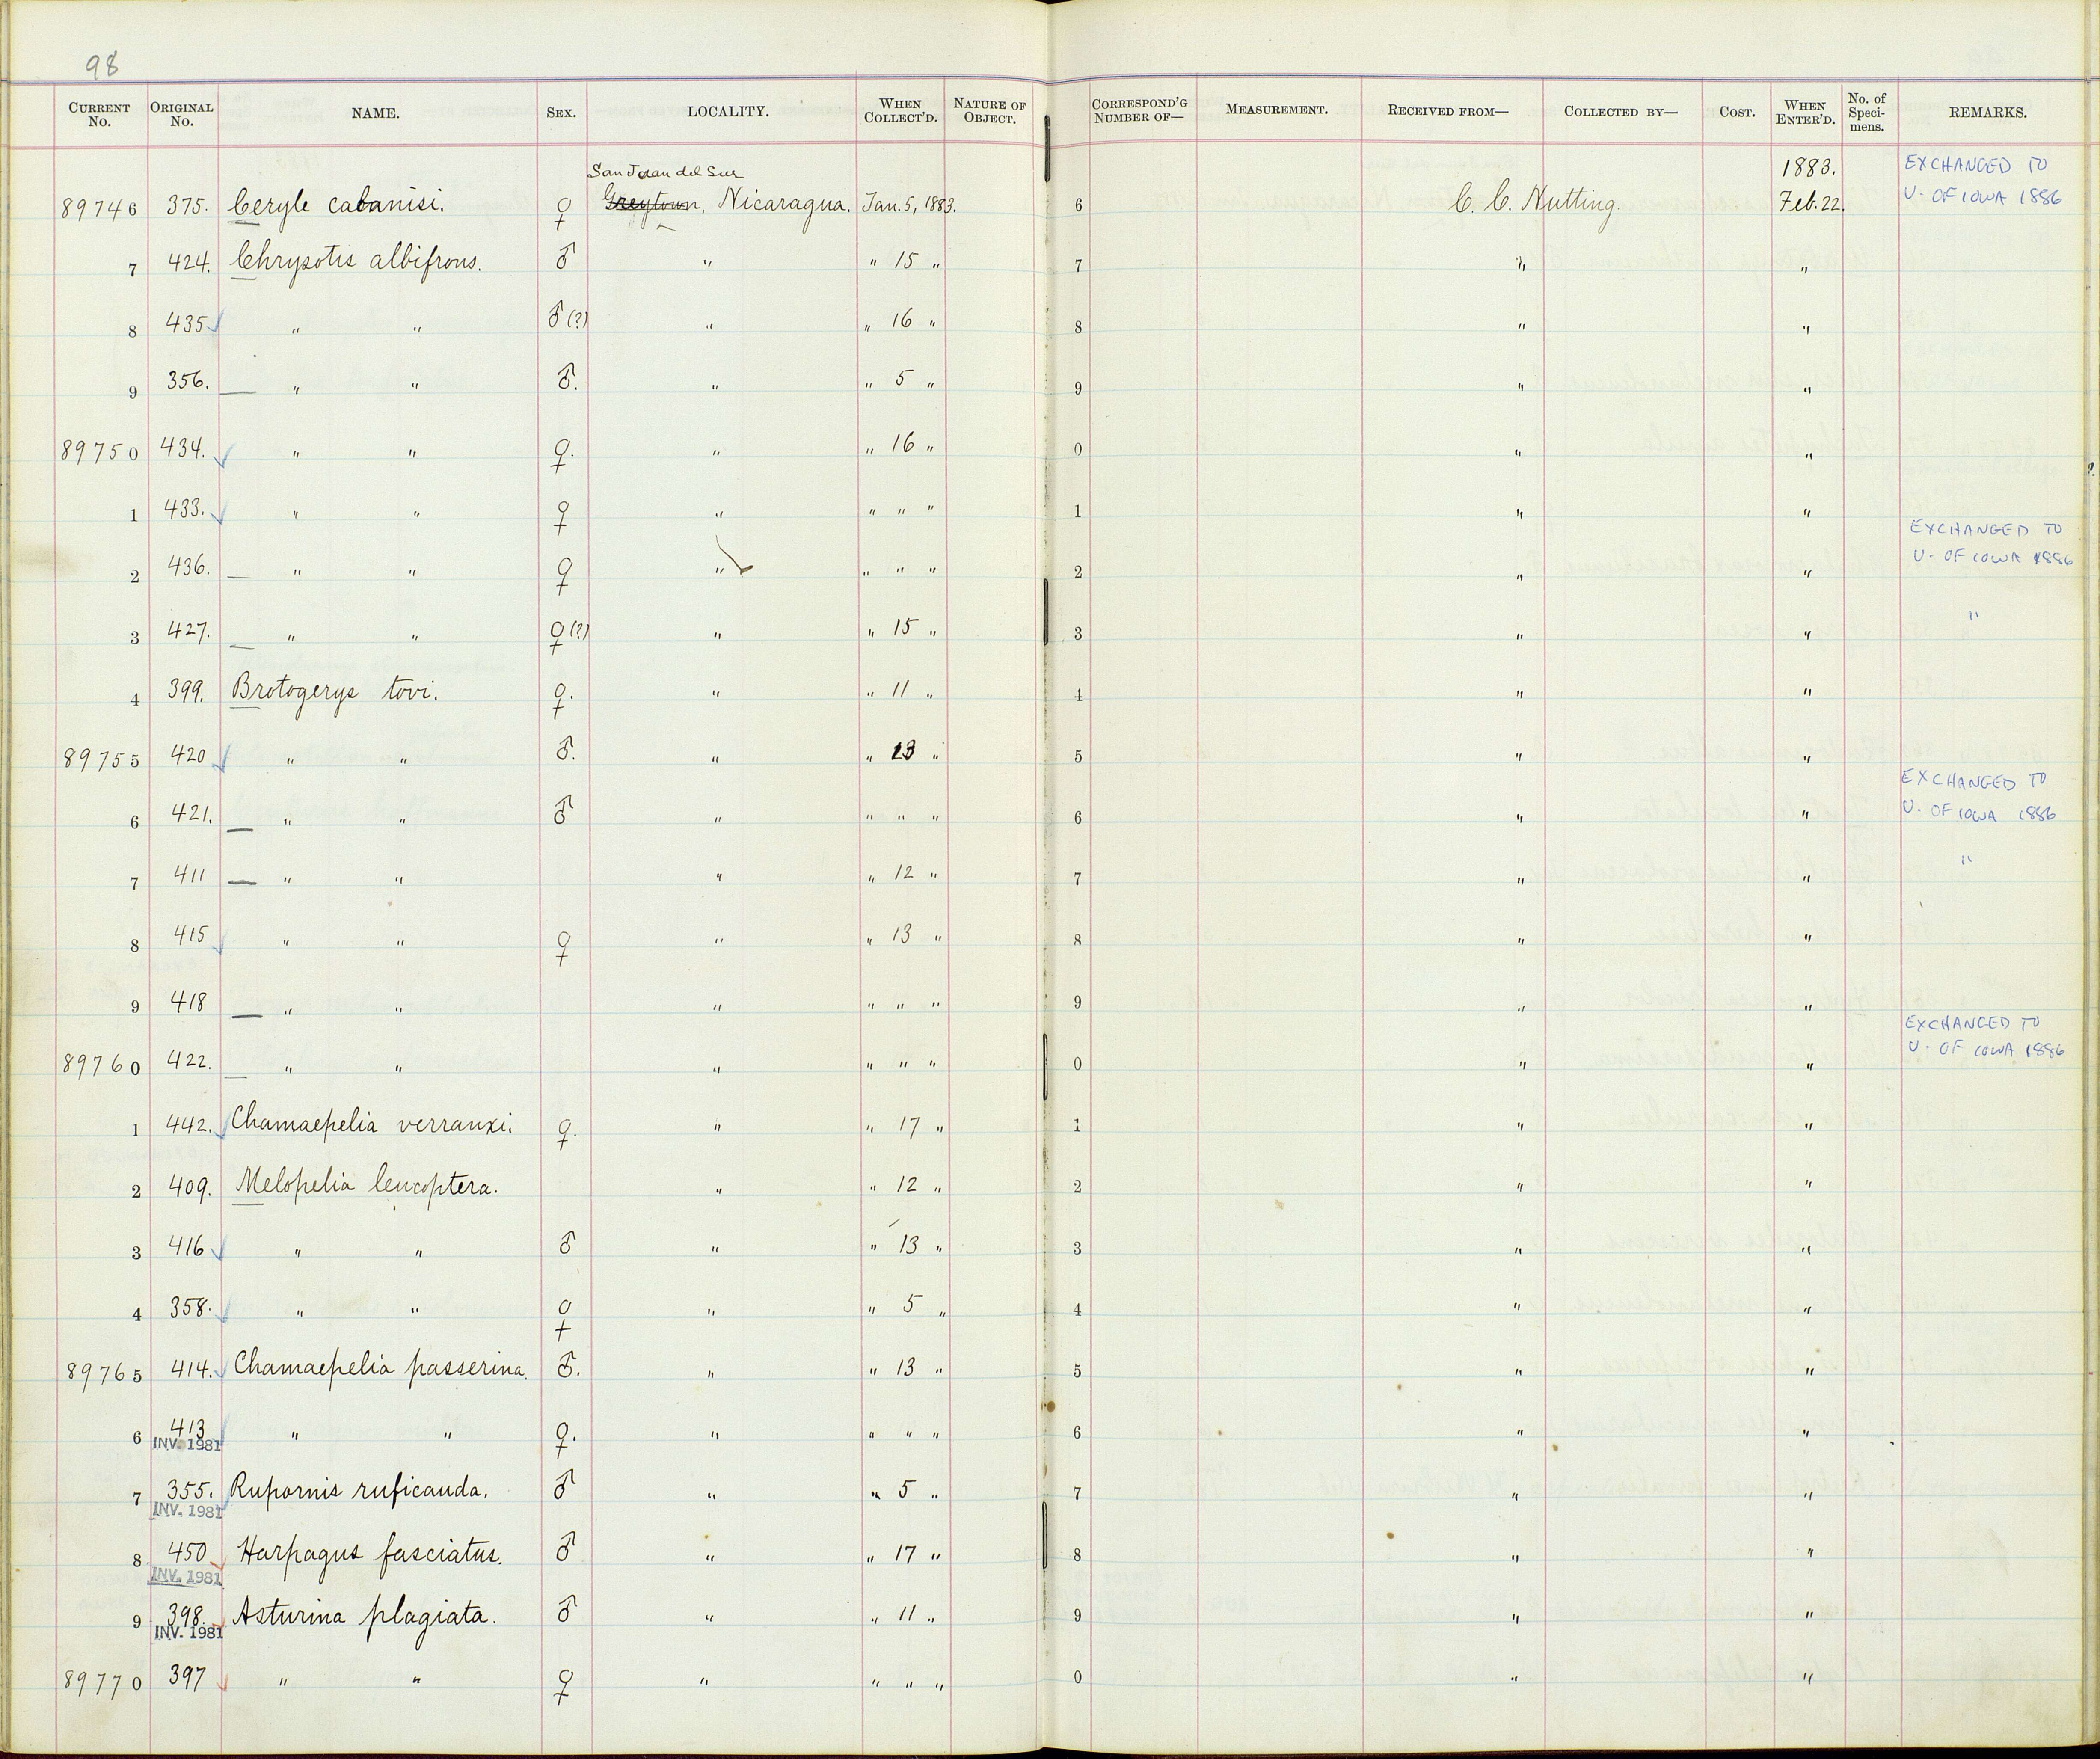 98
CURRENT No. ORIGINAL No. NAME. SEX. LOCALITY. WHEN COLLECT'D. NATURE OF OBJECT. CORRESPOND'G NUMBER OF— MEASUREMENT. RECEIVED FROM— COLLECTED BY— COST. WHEN ENTER'D. No. of Specimens. REMARKS.
San Juan del Sur 1883. EXCHANGED TO
89746 375. Ceryle cabanisi. ♀ Greytown, Nicaragua. Jan. 5, 1883. 6 C. C. Nutting. Feb. 22. U. OF IOWA 1886
7 424. Chrysotis albifrons. ♂ " " 15 " 7 " "
8 435 " " ♂(?) " " 16 " 8 " "
9 356. " " ♂. " " 5 " 9 " "
89750 434. " " ♀. " " 16 " 0 " "
1 433. " " ♀ " " " " 1 " "
EXCHANGED TO
2 436. " " ♀ " " " " 2 " " U. OF IOWA 1886
3 427. " " ♀(?) " " 15 " 3 " " "
4 399. Brotogerys tovi. ♀. " " 11 " 4 " "
89755 420 " " ♂. " " 13 " 5 " "
EXCHANGED TO
6 421. " " ♂ " " " " 6 " " U. OF IOWA 1886
7 411 " " " " 12 " 7 " " "
8 415 " " ♀ " " 13 " 8 " "
9 418 " " " " " " 9 " "
EXCHANGED TO
89760 422. " " " " " " 0 " " U. OF IOWA 1886
1 442. Chamaepelia verrauxi. ♀. " " 17 " 1 " "
2 409. Melopelia leucoptera. " " 12 " 2 " "
3 416 " " ♂ " " 13 " 3 " "
4 358. " " ♀ " " 5 " 4 " "
89765 414. Chamaepelia passerina. ♂. " " 13 " 5 " "
6 413 " " ♀. " " " " 6 " "
INV. 1981
7 355. Rupornis ruficauda. ♂ " " 5 " 7 " "
INV. 1981
8 450 Harpagus fasciatus. ♂ " " 17 " 8 " "
INV. 1981
9 398. Asturina plagiata. ♂ " " 11 " 9 " "
INV. 1981
89770 397 " " ♀ " " " " 0 " "